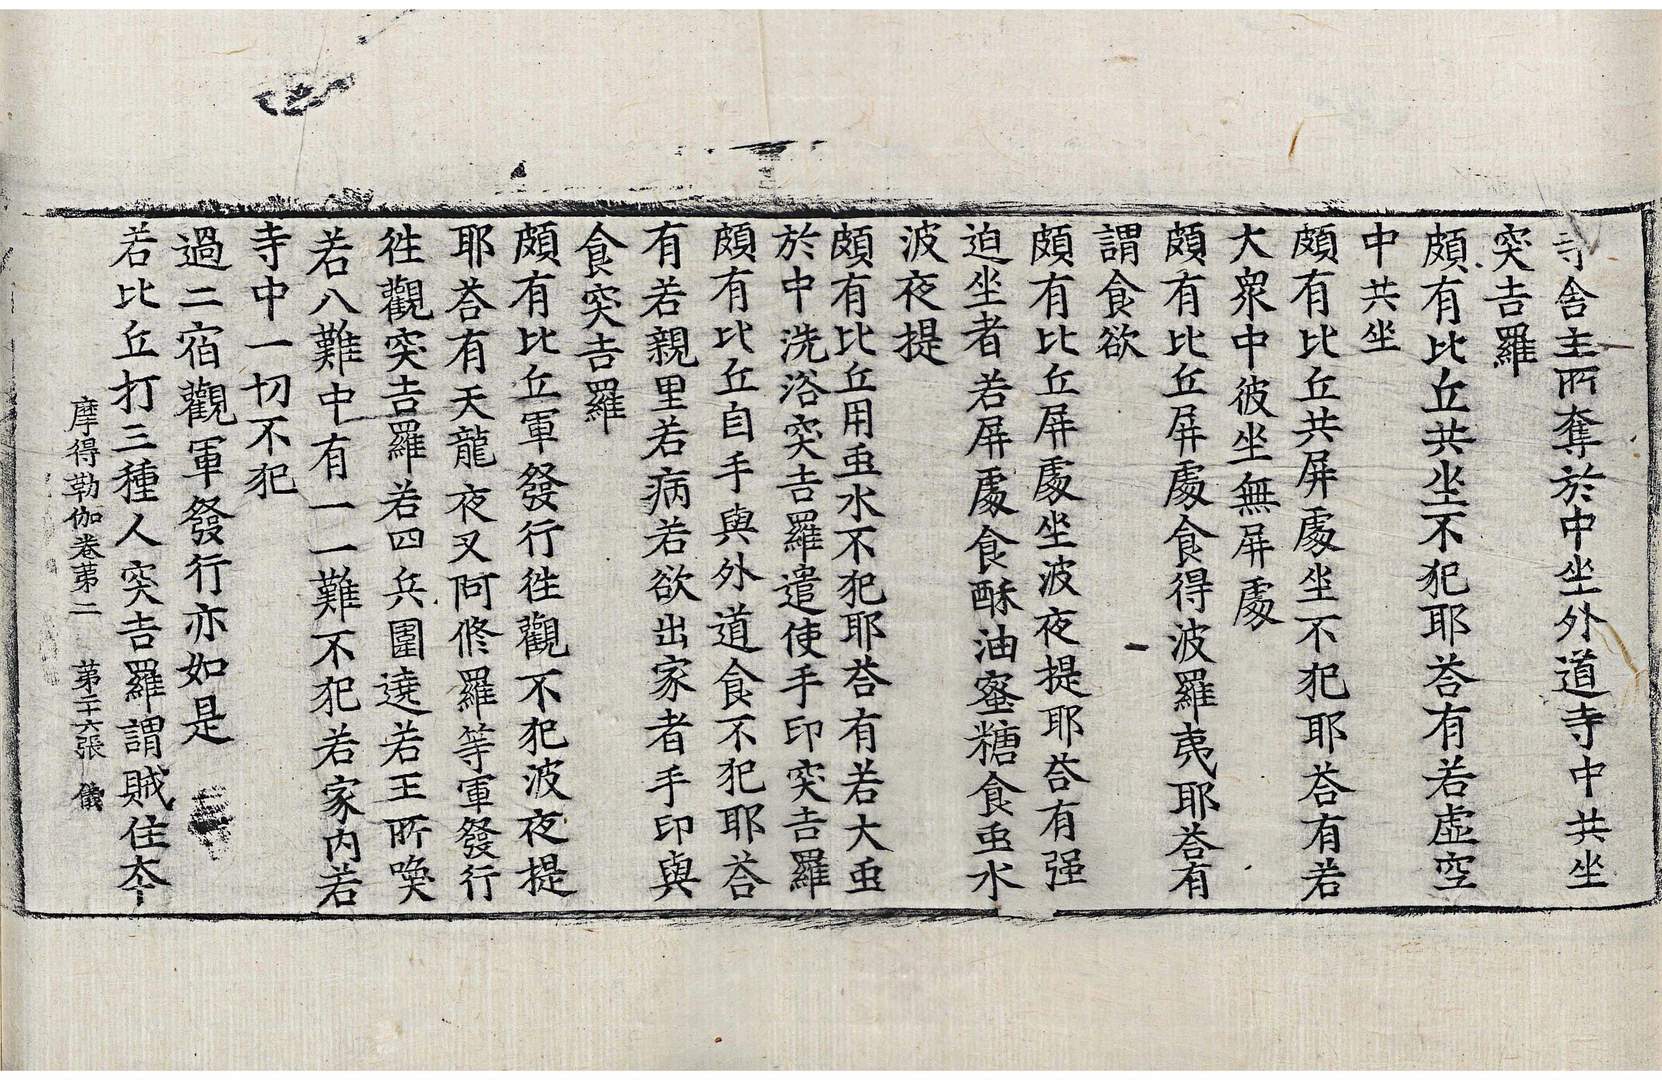 寺舍主所奪於中坐外道寺中共坐
突吉羅
頗有比丘共坐不犯耶荅有若虛空
中共坐
頗有比丘共屏處坐不犯耶荅有若
大衆中彼坐無屏處
頗有比丘屏處食得波羅夷耶荅有
謂食欲
頗有比丘屏處坐波夜提耶荅有强
迫坐者若屏處食酥油蜜糖食虫水
波夜提
頗有比丘用虫水不犯耶荅有若大虫
於中洗浴突吉羅遣使手印突吉羅
頗有比丘自手與外道食不犯耶荅
有若親里若病若欲出家者手印與
食突吉羅
頗有比丘軍發行徃觀不犯波夜提
耶荅有天龍夜叉阿修羅等軍發行
徃觀突吉羅若四兵圍遶若王所喚
若八難中有一一難不犯若家內若
寺中一切不犯
過二宿觀軍發行亦如是
若比丘打三種人突吉羅謂賊住本
摩得勒伽卷苐二 第二十六張 儀